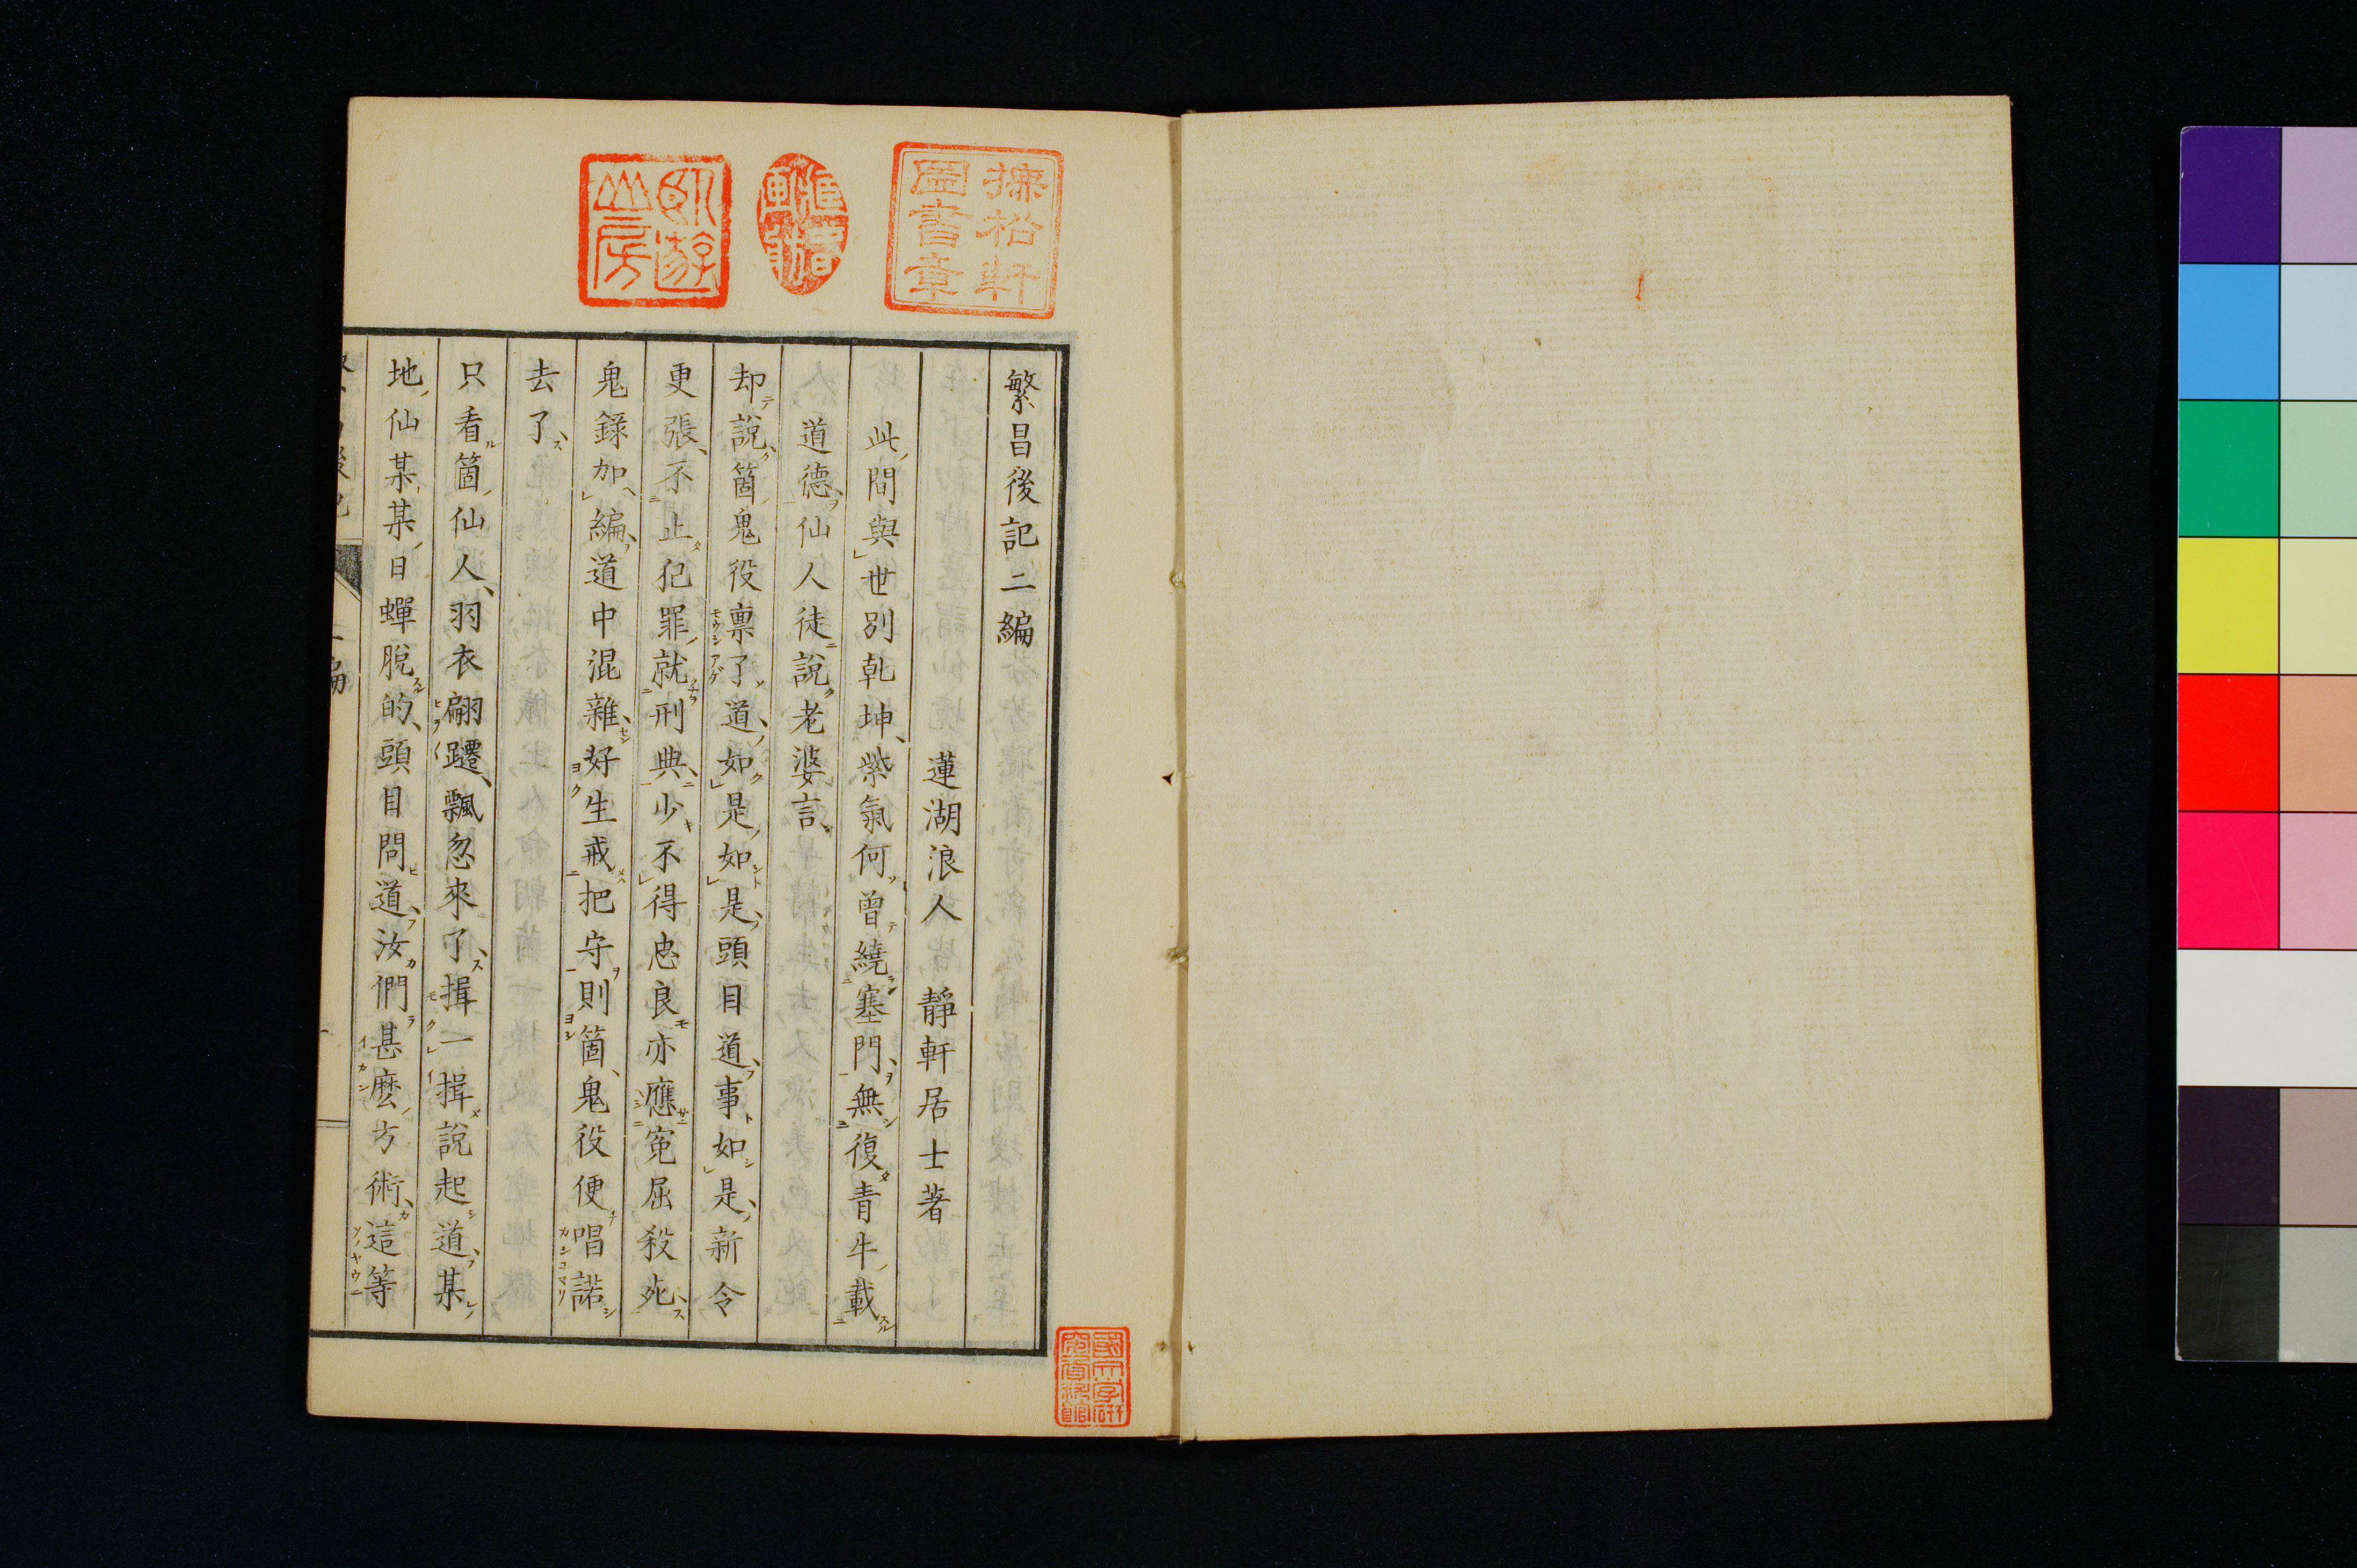 繁昌後記二編
蓮湖浪人 靜軒居士著
此間與世別乾坤紫氣何曾繞塞門無復青牛載
道德仙人徒說老婆言
却說箇鬼役稟了道如是如是頭目道事如是新令
更張不止犯罪就刑典少不得忠良亦應冤屈殺死
鬼錄加編道中混雜好生戒把守則箇鬼役便唱諾
去了
只看箇仙人羽衣翩躚飄忽來了揖一揖說起道某
地仙某某日蟬脫的頭目問道汝們甚麼方術這等
臥遊
山房
圖書章